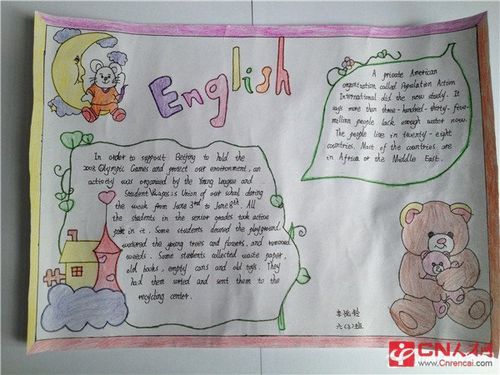 English
A private American
organization called Population Action
International did the new study. It
says more than three-hundred-thirty-five-
million people lack enough water now.
The people live in twenty-eight
countries. Most of the countries are
in Africa or the Middle East.
In order to support Beijing to hold the
2008 Olympic Games and protect our environment, an
activity was organized by the Young League and
Student Union of our school during
the week from June 3rd to June 8th. All
the students in the senior grades took active
part in it. Some students cleaned the playground,
watered the young trees and forests, and removed
weeds. Some students collected waste paper,
old books, empty cans and old toys. They
had them sorted and sent them to the
recycling center.
六(3)班
CN人才网
Cnrencai.com